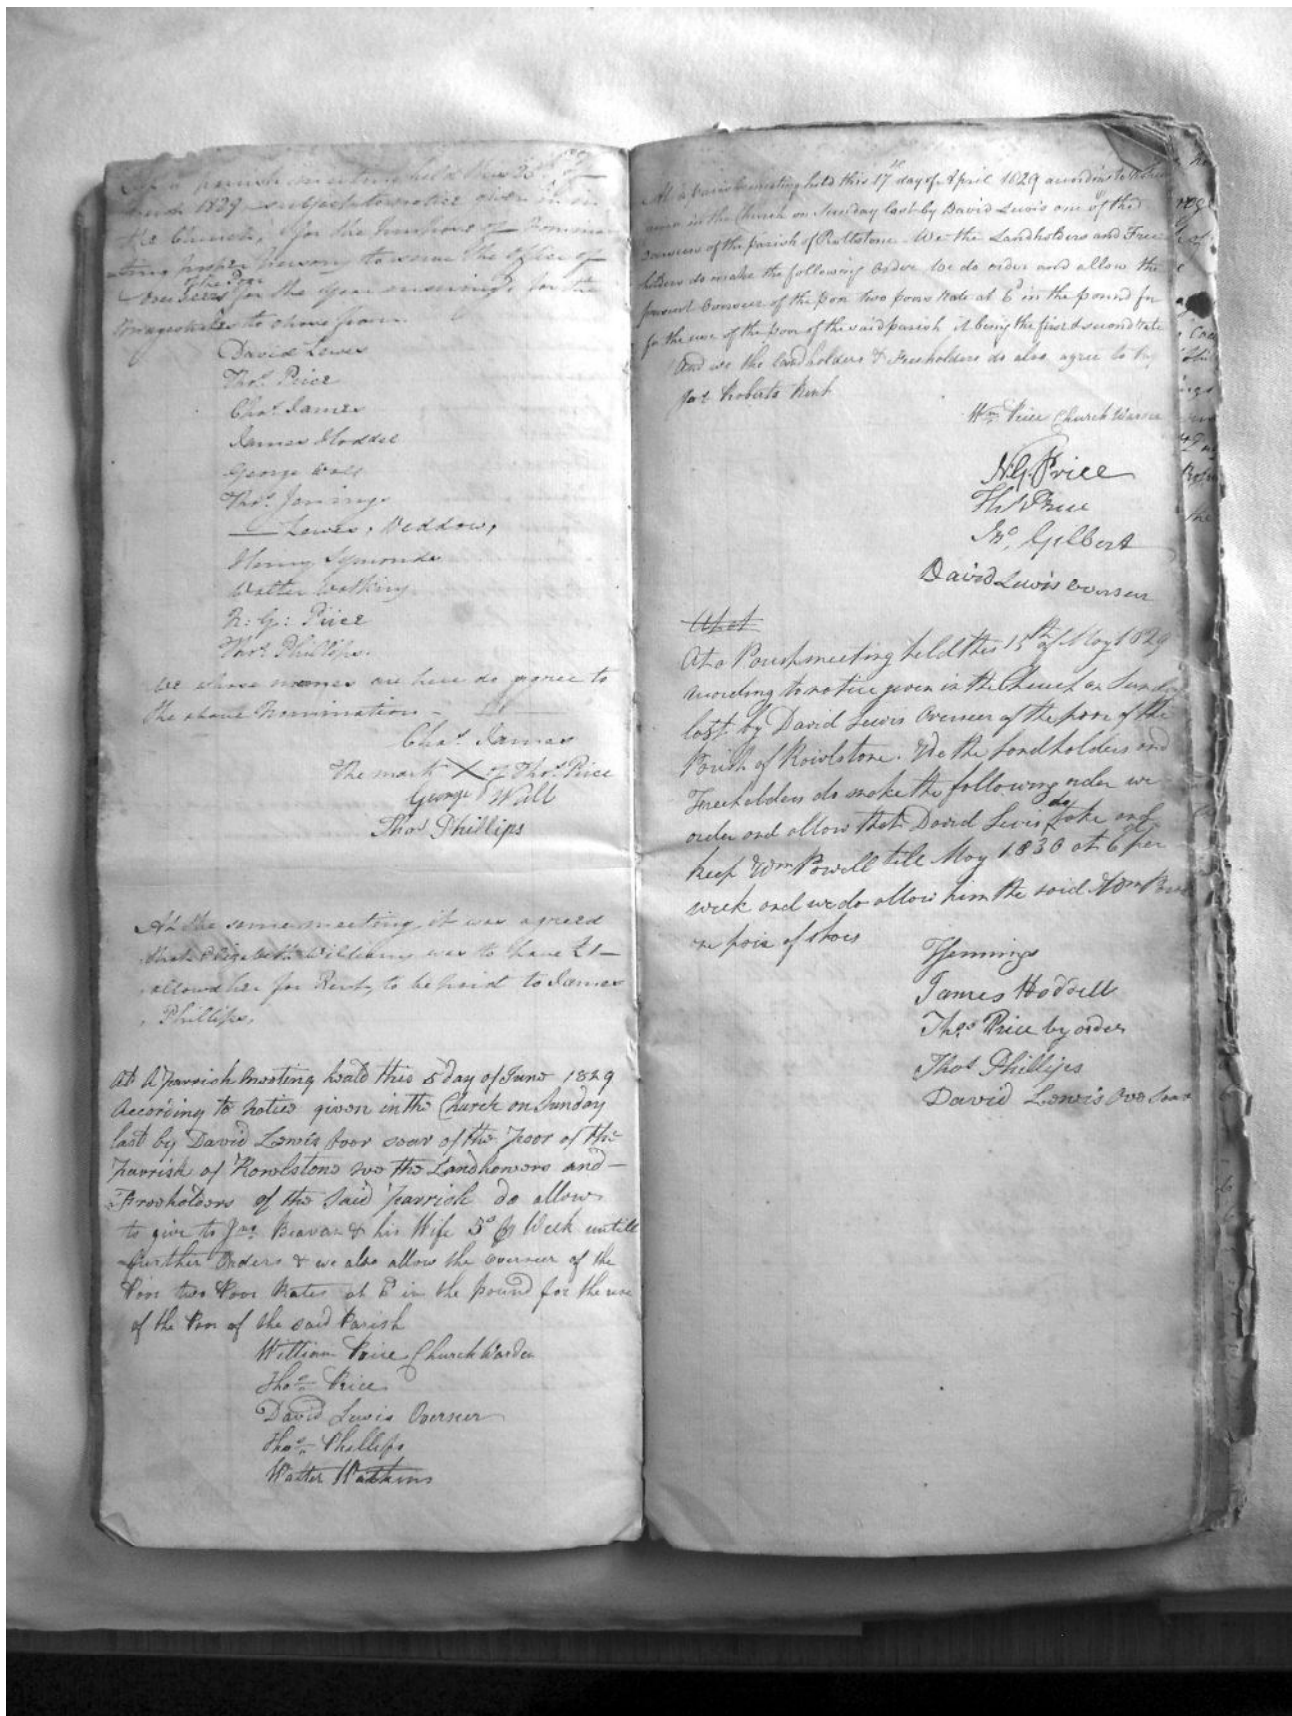 At a parish meeting held this 25th of
March 1829 subject to notice given in in
the Church, for the purpose of Nomin
ating proper persons to serve the Office of
Overseers of the Poor for the year ensuing for the
Magestrates to chose from
David Lewes
Thos. Price
Chas. James
James Hoddel
George Wall
Thos. Jenings
Lewes, Meddow,
Henry Symonds
Walter Watkins
N: G: Price
Thos. Phillips.
We whose names are here do agree to
the above Nomination -
Chas. James
The mark X of Thos. Price
George Wall
Thos Phillips
At the same meeting it was agreed
that Elizabeth Williams was to have £1 -
allowd her for Rent, to be paid to James
Phillips.
At A Parrish Meeting heald this 5 day of June 1829
According to notice given in the Church on Sunday
last by David Lewis Over sear of the Poor of the
Parrish of Rowlstone we the Landhowers and -
Freeholders of the Said Parrish do allow
to give to Jno. Beavan & his Wife 5s Week untill
further Orders & we also allow the overseer of the
Poor two Poor Rates at 6d in the pound for the use
of the Poor of the said Parish
William Price Church Warden
Thos. Price
David Lewis Overseer
Thos. Phillips
Walter Watkins
At a Parish meeting held this 17th day of April 1829 according to notice
given in the Church on Sunday last by David Lewis one of the
overseers of the parish of Rollstone - We the Landholders and Free
holders do make the following Order We do order and allow the
present Overseer of the poor two poors Rate at 6d in the pound for
for the use of the poor of the said parish it being the first & second rate
And we the landholders & Freeholders do also agree to pay
Roberts Rent
Wm. Price Church Warden
N.G. Price
Thos Price
Jno. Gilbert
David Lewis Overseer
At a Parish meeting held this 15th of May 1829
according to notice given in the Church on Sunday
last by David Lewis Overseer of the poor of the
Parish of Rowlstone. We the Landholders and
Freeholders do make the following order we
order and allow that David Lewis do take and
keep Wm Powell till May 1830 at 6d per
week and we do allow him the said Wm Powell
one pair of shoes
T Jennings
James Hoddell
Thos Price by order
Thos Phillips
David Lewis Ove Sear